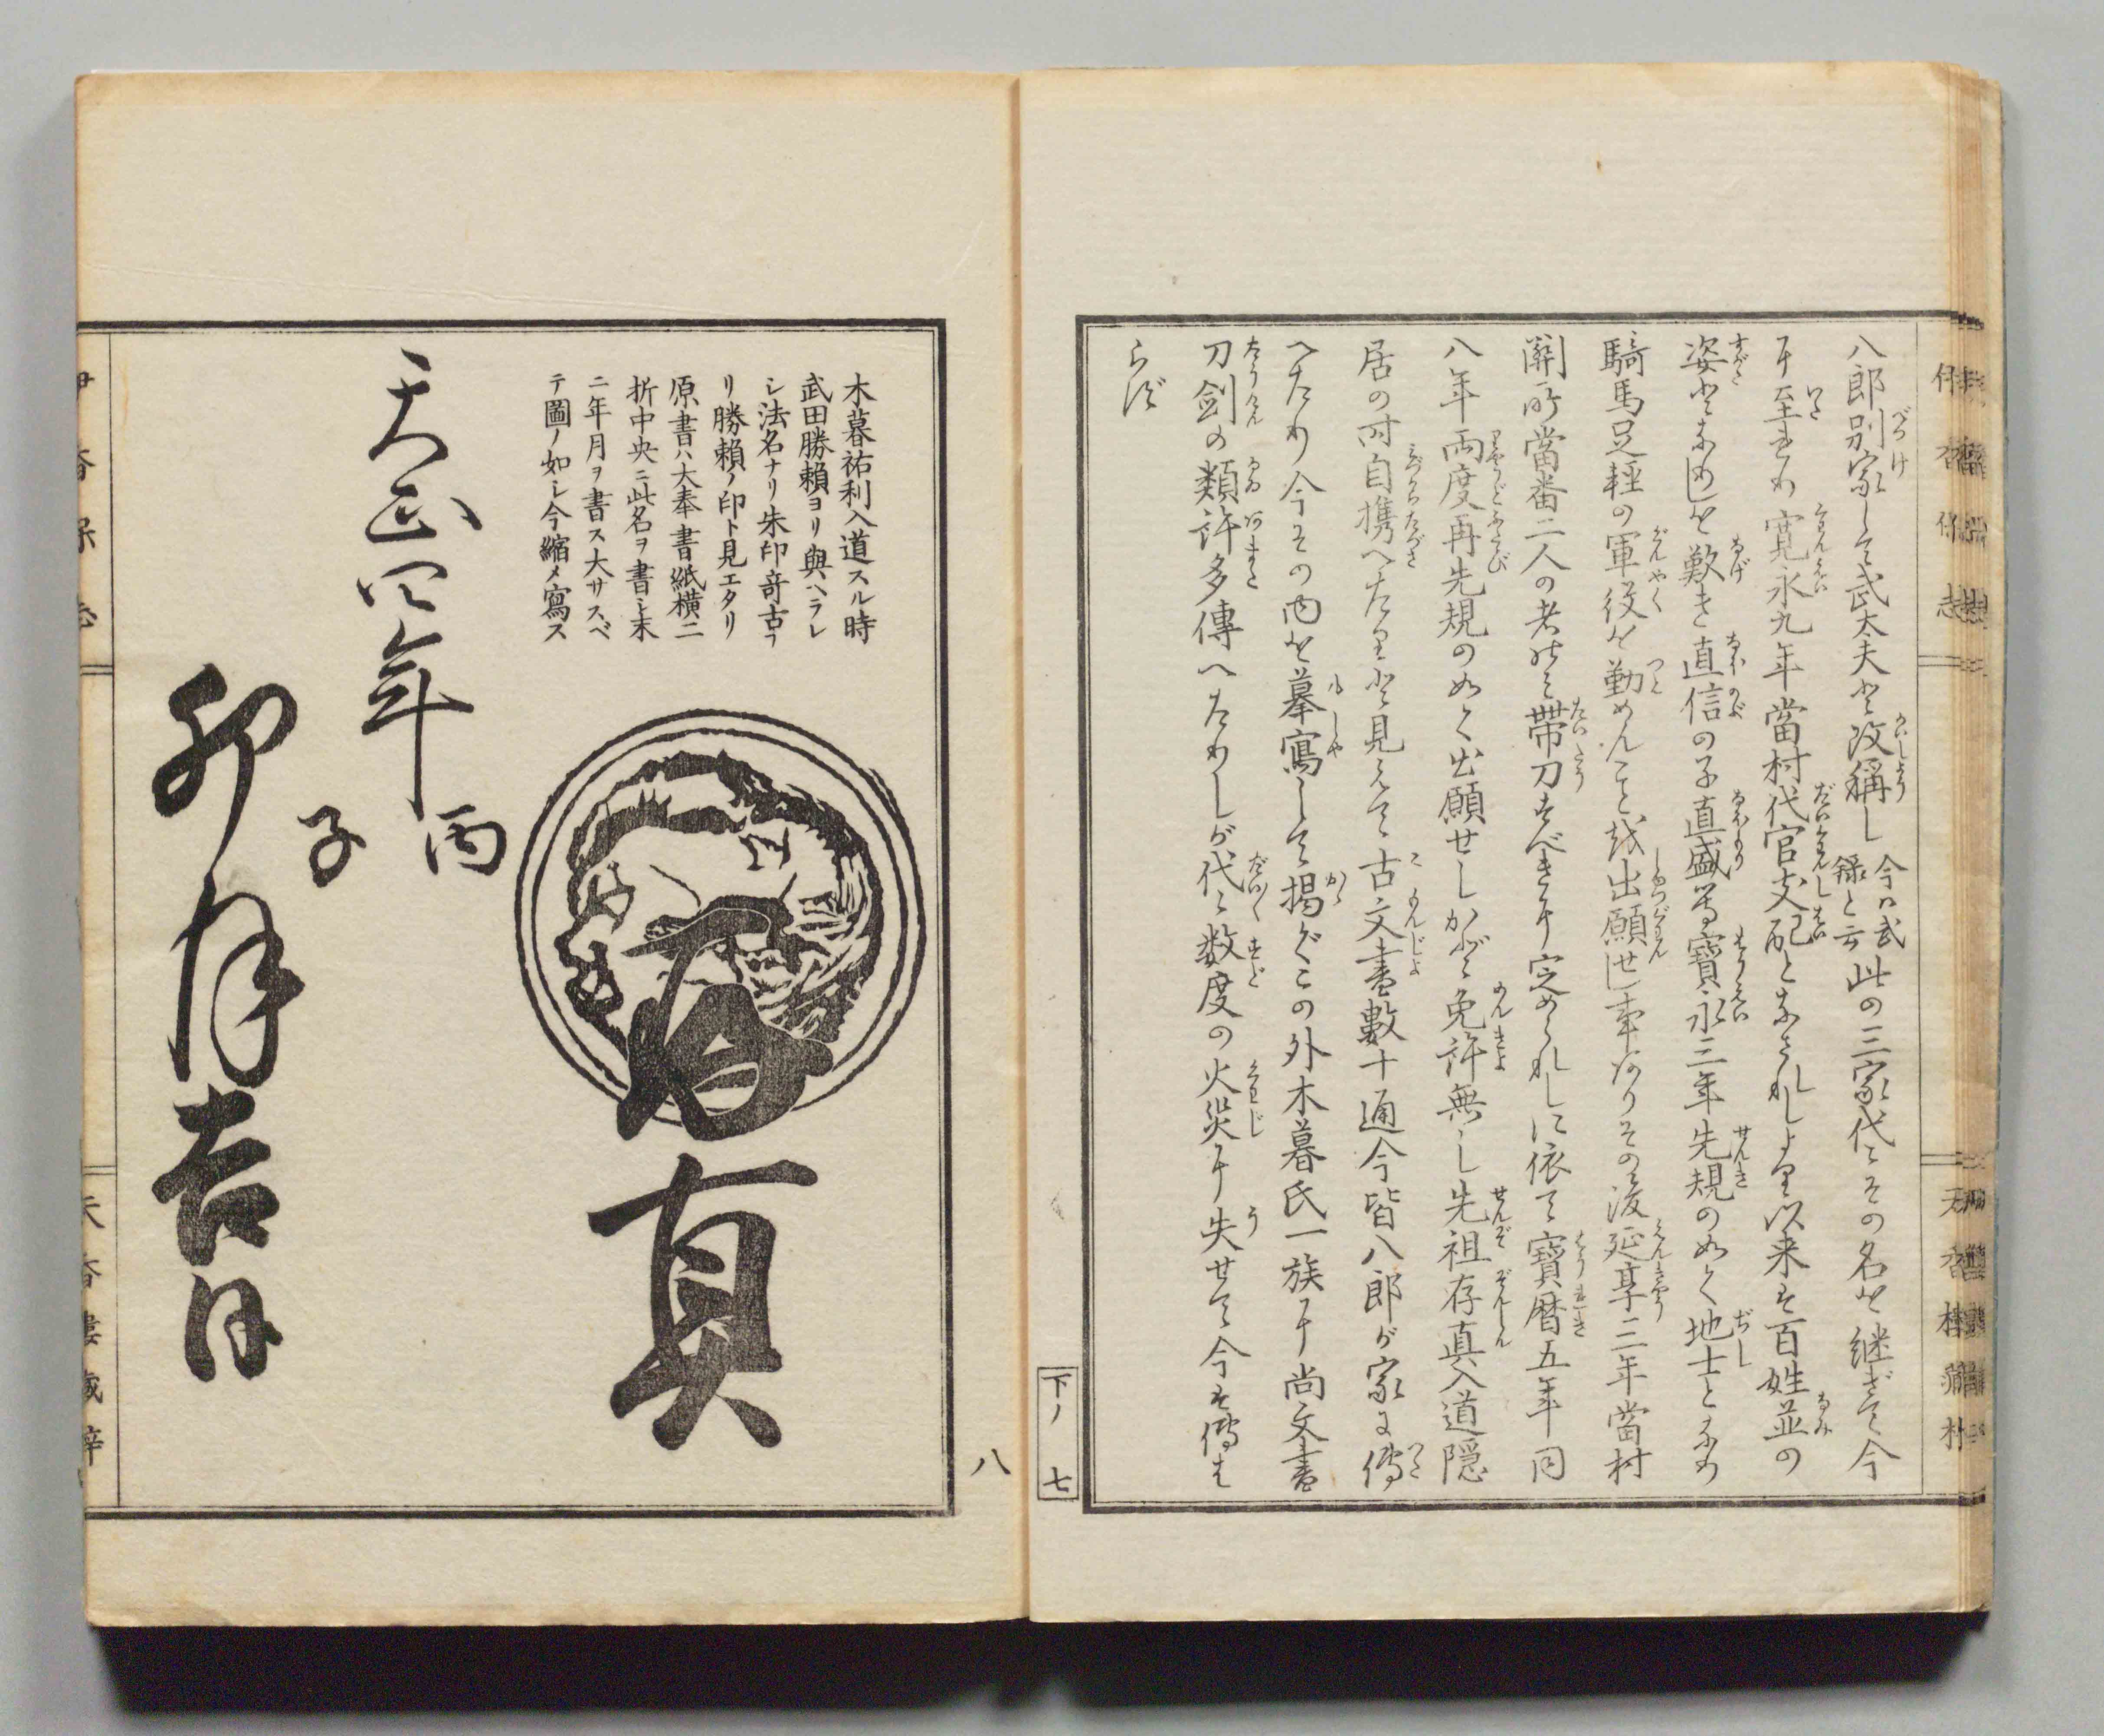 八郎別家して武太夫と改稱し今ハ武録と云此の三家代〻その名を継ぎて今
に至れり寛永九年當村代官支配となされしより以来は百姓並の
姿となりしを歎き直信の子直盛等寶永三年先規のめく地士となり
騎馬足軽の軍役を勤めんと出願せし事ありその後延享三年當村
關所當番二人の者のみ帯刀すべきに定められしに依て寶暦五年同
八年両度再先規のめく出願せしかど免許無し先祖存真入道隠
居の時自携へたりと見えて古文書數十通今皆八郎が家に傳
へたり今その内を摹寫して掲ぐこの外木暮氏一族に尚文書
刀劍の類許多傳へたりしが代〻数度の火災に失せて今は傳は
らず
下ノ七
八
木暮祐利入道スル時
武田勝頼ヨリ與ヘラレ
シ法名ナリ朱印奇古ナ
リ勝頼ノ印ト見エタリ
原書ハ大奉書紙横二
折中央ニ此名ヲ書シ末
ニ年月ヲ書ス大サスベ
テ圖ノ如シ今縮メ寫ス
存真
天正四年丙子
卯月吉日